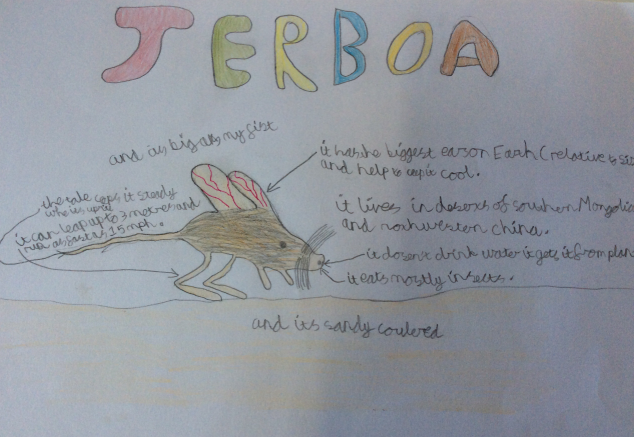 JERBOA
and is big as my fist
it has the biggest ears on Earth (relative to si
and help to cep it cool.
the tale ceps it steady
it can leap up to 3 metres and
run as fast as 15 mph.
it lives in deserts of southern Mongolia
and northwestern china.
it dosen't drink water it gets it from plan
it eats mostly insects.
and its sandy coulered